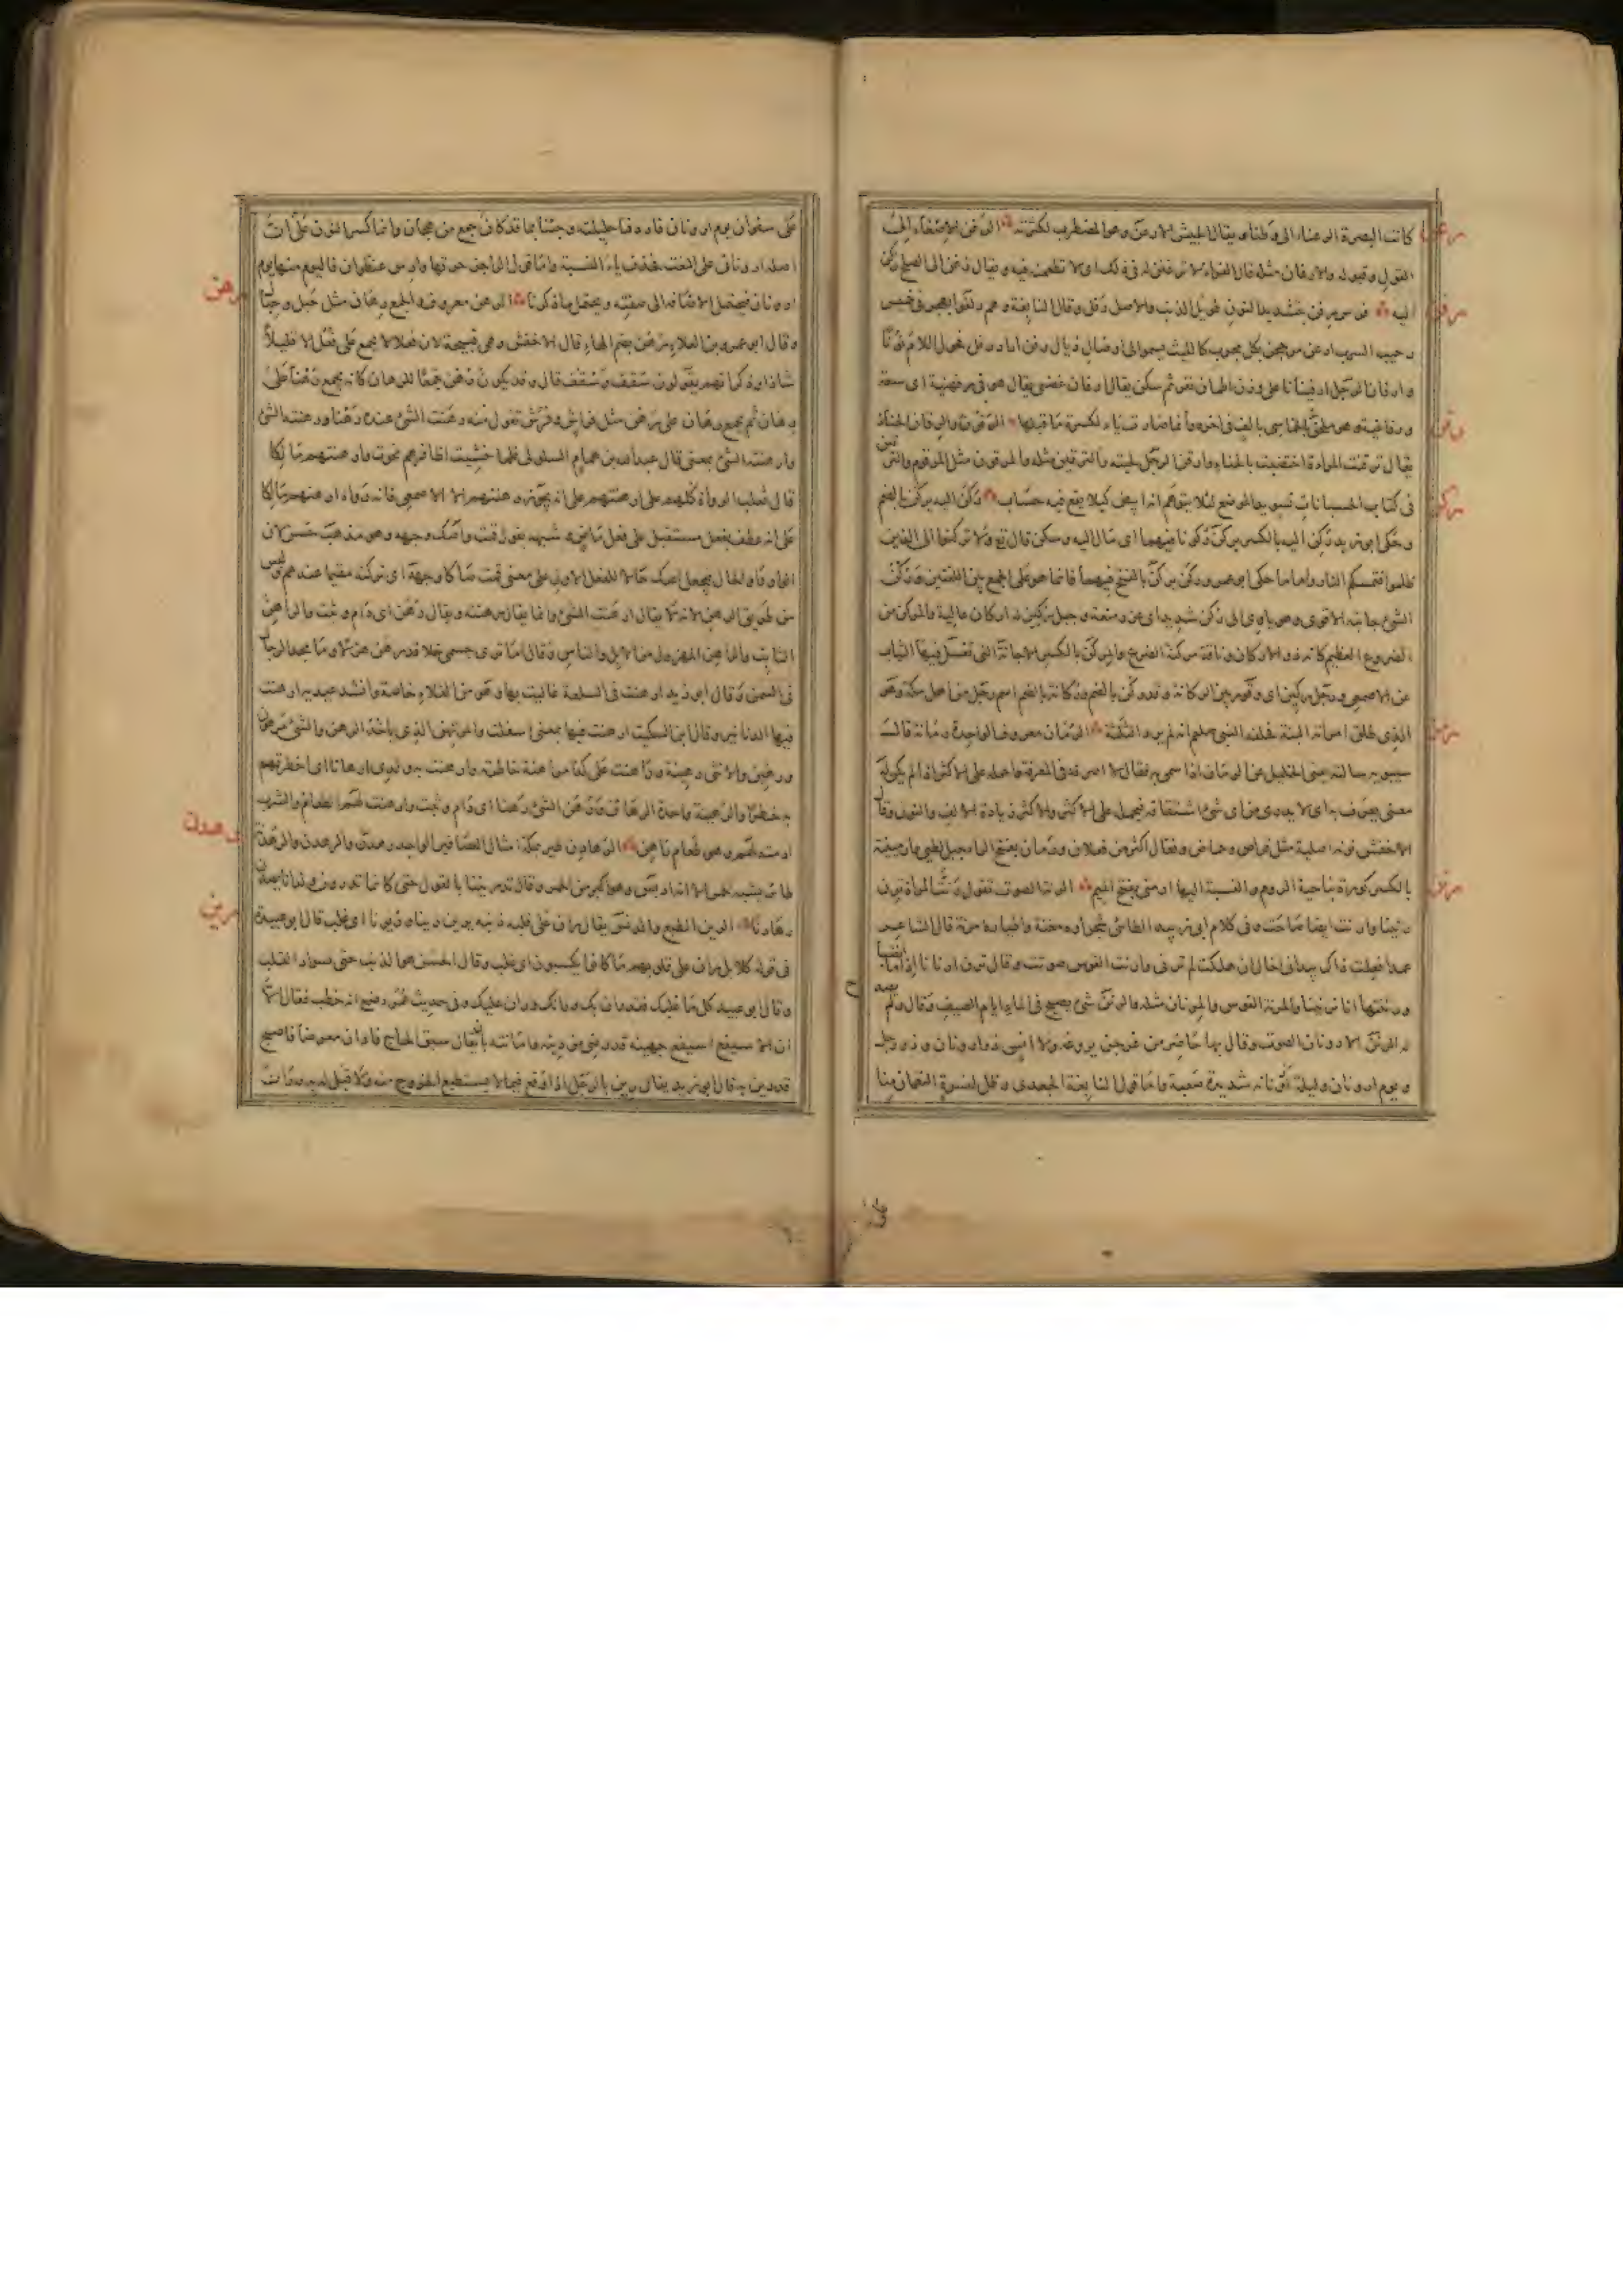 كانت البصرة الرعناء الى وطنا ويقال لجيش الارعن وهو المضطرب لكثرته الرغن الاصغاء الى
القول وقبوله والارغان مثله قال الفراء لا ترغنن له فى ذلك اى لا تطمعن فيه ويقال رغن الى الصلح ركن
اليه فرس رفن بتشديد النون طويل الذنب والاصل رفل وقال النابغة وهم دلفوا بحجر فى خميس
رحيب السرب ارعن مرجحن بكل مجرب كالليث يسمو الى اوصال ذيال رفن اراد رفل فحول اللام نونا
وارفان الرجل ارفينانا على وزن اطمان نفر ثم سكن يقال ارفان غضبى يقال هو فى رفهنية اى سعة
ورفاغية وهو ملحق بالخماسى بالف فى اخره وانما صارت ياء لكسرة ما قبلها الرقون والرقان الحناء
يقال ترقنت المراة اختضبت بالحناء وارقن الرجل لحيته والترقين مثله والمرقون مثل المرقوم والترقين
فى كتاب الحسبانات تسويد الموضع لئلا يتوهم انه ابيض كيلا يقع فيه حساب ركن اليه يركن بالضم
وحكى ابو زيد ركن اليه بالكسر يركن ركونا فيهما اى مال اليه وسكن قال تع ولا تركنوا الى الذين
ظلموا فتمسكم النار واما ما حكى ابو عمرو ركن يركن بالفتح فيهما فانما هو على الجمع بين اللغتين وركن
الشئ جانبه الاقوى وهو ياوى الى ركن شديد اى عز ومنعة وجبل ركين له اركان عالية والمركن من
الضروع العظيم كانه ذو الاركان وناقة مركنة الضرع والمركن بالكسر الاجانة التى تغسل فيها الثياب
عن الاصمعى ورجل ركين اى وقور بين الركانة وقد ركن بالضم وركانة بالضم اسم رجل من اهل مكة وهو
الذى طلق امراته البتة فحلفه النبى صلعم انه لم يرد الثلثة الرمان معروف الواحدة رمانة قال
سيبويه سالته يعنى الخليل عن الرمان اذا سمى به فقال لا اصرفه فى المعرفة واحمله على الاكثر اذ لم يكن له
معنى يعرف به اى لا يدرى من اى شئ اشتقاقه فيحمل على الاكثر والاكثر زيادة الالف والنون وقال
الاخفش نونه اصلية مثل قراص وحماض وفعال اكثر من فعلان ورمان بفتح الراء جبل لطيئ وارمينية
بالكسر كورة بناحية الروم والنسبة اليها ارمنى بفتح الميم الرنة الصوت تقول رنت المراة ترن
رنينا وارنت ايضا صاحت وفى كلام ابى زبيد الطائى شجراؤه مغنة واطياره مرنة قال الشاعر
عمدا فعلت ذاك بيد انى اخال ان هلكت لم ترنى وارنت القوس صوتت وقال ترن ارنانا اذا ما انضبا
ورننتها انا ترنينا والمرنة القوس والمرنان مثله والرنن شئ يصيح فى الماء ايام الصيف وقال ولم يصدح
له الرنن الارونان الصوت وقال بها حاضر من غير جن يروعه ولا انس ذو ارونان وذو زجل
ويوم ارونان وليلة ارونانة شديدة صعبة واما قول النابغة الجعدى وظل لنسوة النعمان منا
على سفوان يوم ارونان فاردفنا حليلته وجئنا بما قد كان جمع من هجان وانما كسر النون على ان
اصله ارونانى على النعت فحذف ياء النسبة واما قول الراجز حرقها وارس عنظوان فاليوم منها يوم
ارونان فيحتمل الاضافة الى صفته ويحتمل ما ذكرنا الرهن معروف والجمع رهان مثل حبل وحبال
وقال ابو عمرو بن العلاء رهن بضم الهاء قال الاخفش وهى قبيحة لان فعلا لا يجمع على فعل الا قليلا
شاذا وذكر انهم يقولون سقف وسقف قال وقد يكون رهن جمعا للرهان كانه يجمع رهن على
رهان ثم يجمع رهان على رهن مثل فراش وفرش تقول منه رهنت الشئ عنده رهنا ورهنته الشئ
وارهنته الشئ بمعنى قال عبد الله بن همام السلولى فلما خشيت اظافرهم نجوت وارهنتهم مالكا
قال ثعلب الرواة كلهم على ارهنتهم على انه يجوز رهنتهم الا الاصمعى فانه رواه ارهنهم مالكا
على انه عطف بفعل مستقبل على فعل ماض وشبهه بقول قمت واصك وجهه وهو مذهب حسن لان
الواو واو الحال فيجعل اصك حالا للفعل الاول على معنى قمت صاكا وجهه اى تركته مقيما عندهم وليس
من طريق الرهن لانه لا يقال ارهنت الشئ وانما يقال رهنته ويقال رهن اى دام وثبت والراهن
الثابت والراهن المهزول من الابل والناس وقال اما ترى جسمى خلا قد رهن هزلا وما مجد الرجال
فى السمن وقال ابو زيد ارهنت فى السلعة غاليت بها وهو من الغلاء خاصة وانشد عيدية ارهنت
فيها الدنانير وقال ابن السكيت ارهنت فيها بمعنى اسلفت والمرتهن الذى ياخذ الرهن والشئ مرهون
ورهين والانثى رهينة وراهنت على كذا مراهنة خاطرته وارهنت به ولدى ارهانا اى اخطرتهم
به خطرا والرهينة واحدة الرهائن ورهن الشئ رهنا اى دام وثبت وارهنت لهم الطعام والشراب
ادمته لهم وهو طعام راهن الرهادن طير بمكة امثال العصافير الواحد رهدن والرهدن والرهدنة
طائر يشبه الحمر الا انه ادبس وهو اكبر من الحمر وقال تذريننا بالقول حتى كانما تذرين ولدانا يصدن
رهادنا الرين الطبع والدنس يقال ران على قلبه ذنبه يرين رينا وريونا اى غلب قال ابو عبيدة
فى قوله كلا بل ران على قلوبهم ما كانوا يكسبون اى غلب وقال الحسن هو الذنب حتى سواد القلب
وقال ابو عبيد كل ما غلبك فقد ران بك ورانك وران عليك وفى حديث عمر رضع انه خطب فقال الا
ان الاسيفع اسيفع جهينة قد رضى من دينه وامانته بان يقال سبق الحاج فادان معرضا فاصبح
قد رين به قال ابو زيد يقال رين بالرجل اذا وقع فيما لا يستطيع الخروج منه ولا قبل له به ورانت
رغن
رفن
رقن
ركن
رمن
رنن
رهن
رهدن
رين